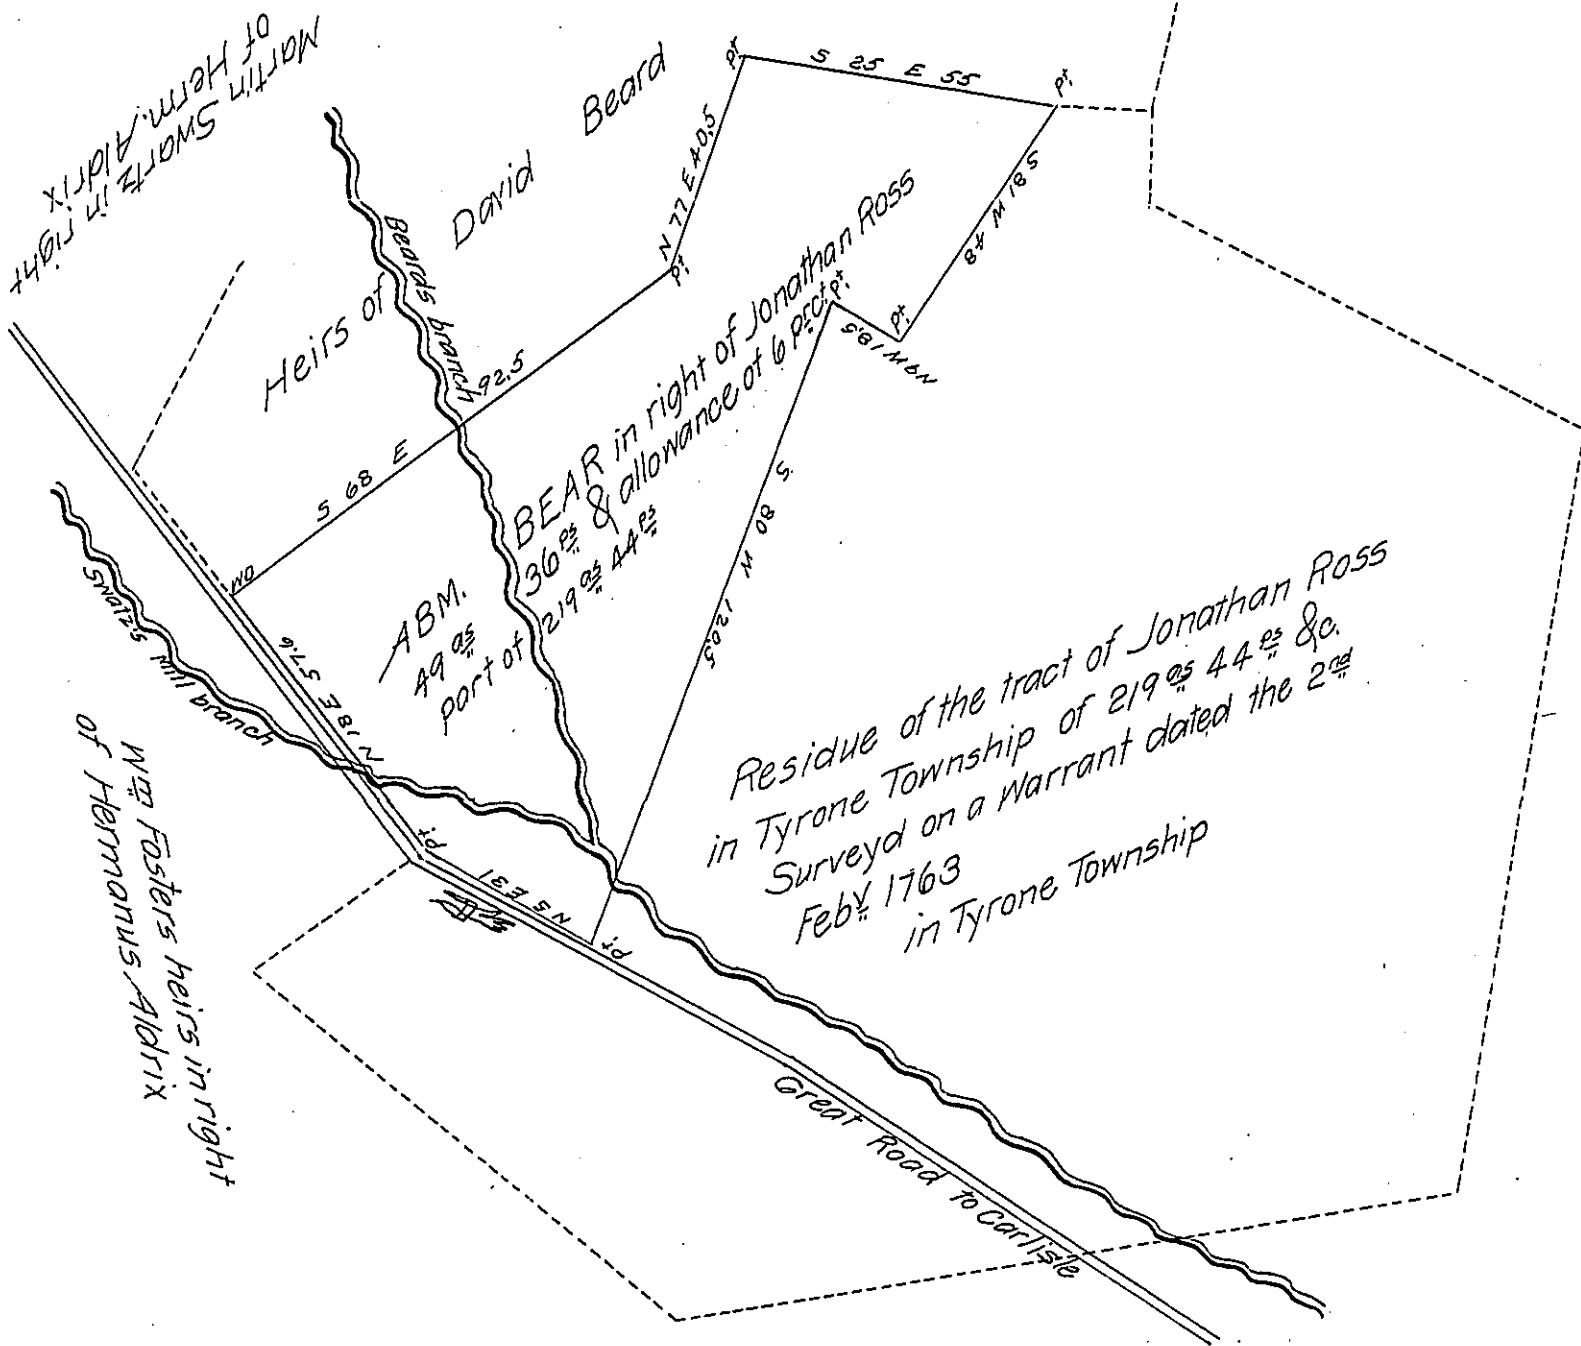 Martin Swartz in right
of Herm. Aldrix
Heirs of David Beard
Beards branch
S 68 E 92.5
N 77 E 40.5
S 25 E 55
S 81 W 48
N9W 18.5
S. 80 W 120.5
N 5 E 31
N 18 E 57.6
WO
Pt.
Pt.
Pt.
Pt.
Pt.
Pt.
Pt.
ABM. BEAR in right of Jonathan Ross
49 as 36 ps & allowance of 6 pr Ct.
part of 219 as 44 ps
Swatz's Mill branch
Wm Fosters heirs in right
of Hermanus Aldrix
Residue of the tract of Jonathan Ross
in Tyrone Township of 219 as 44 ps &c.
Surveyd on a Warrant dated the 2nd
Feby 1763
in Tyrone Township
Great Road to Carlisle